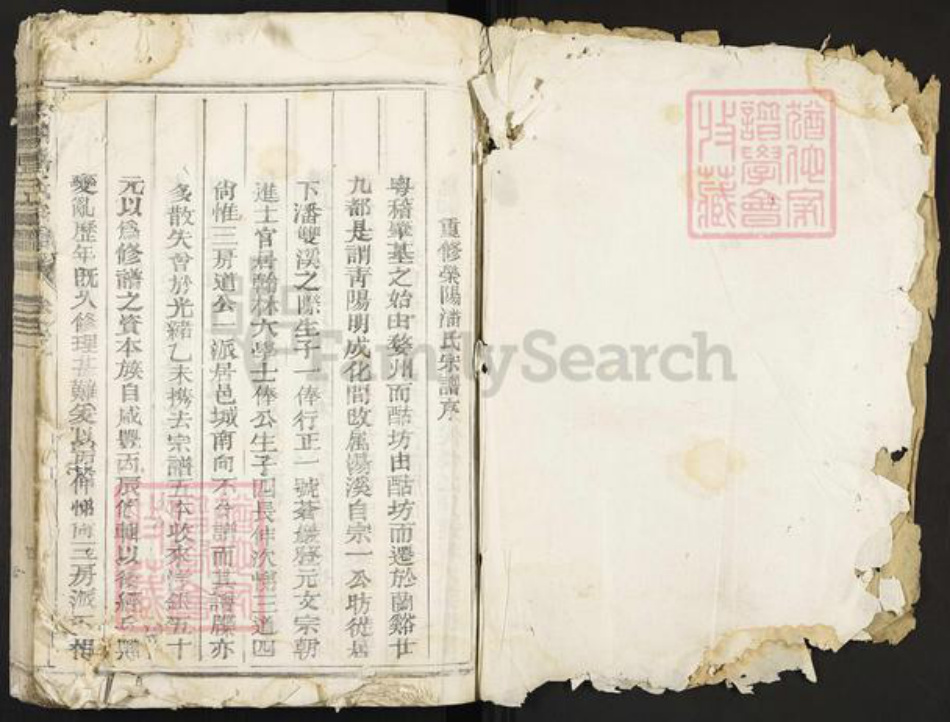 重修滎陽潘氏宗譜序
粵稽肇基之始由婺州而酤坊由酤坊而遷於蘭谿廿
九都是謂青陽明成化間改屬湯溪自宗一公昉從居
下潘雙溪之際生子一俸行正一號蒼巖登元文宗朝
進士官居翰林大學士俸公生子四長伸次悌三道四
尙惟三房道公一派居邑城南向不合譜而其譜牒亦
多散失曾於光緒乙未携去宗譜五本收來洋銀五十
元以爲修譜之資本族自咸豐丙辰修輯以後經兵燹
變亂歷年既久修理甚難矣以房伸悌尙三房派不相
FamilySearch
猶他家
譜學會
收藏